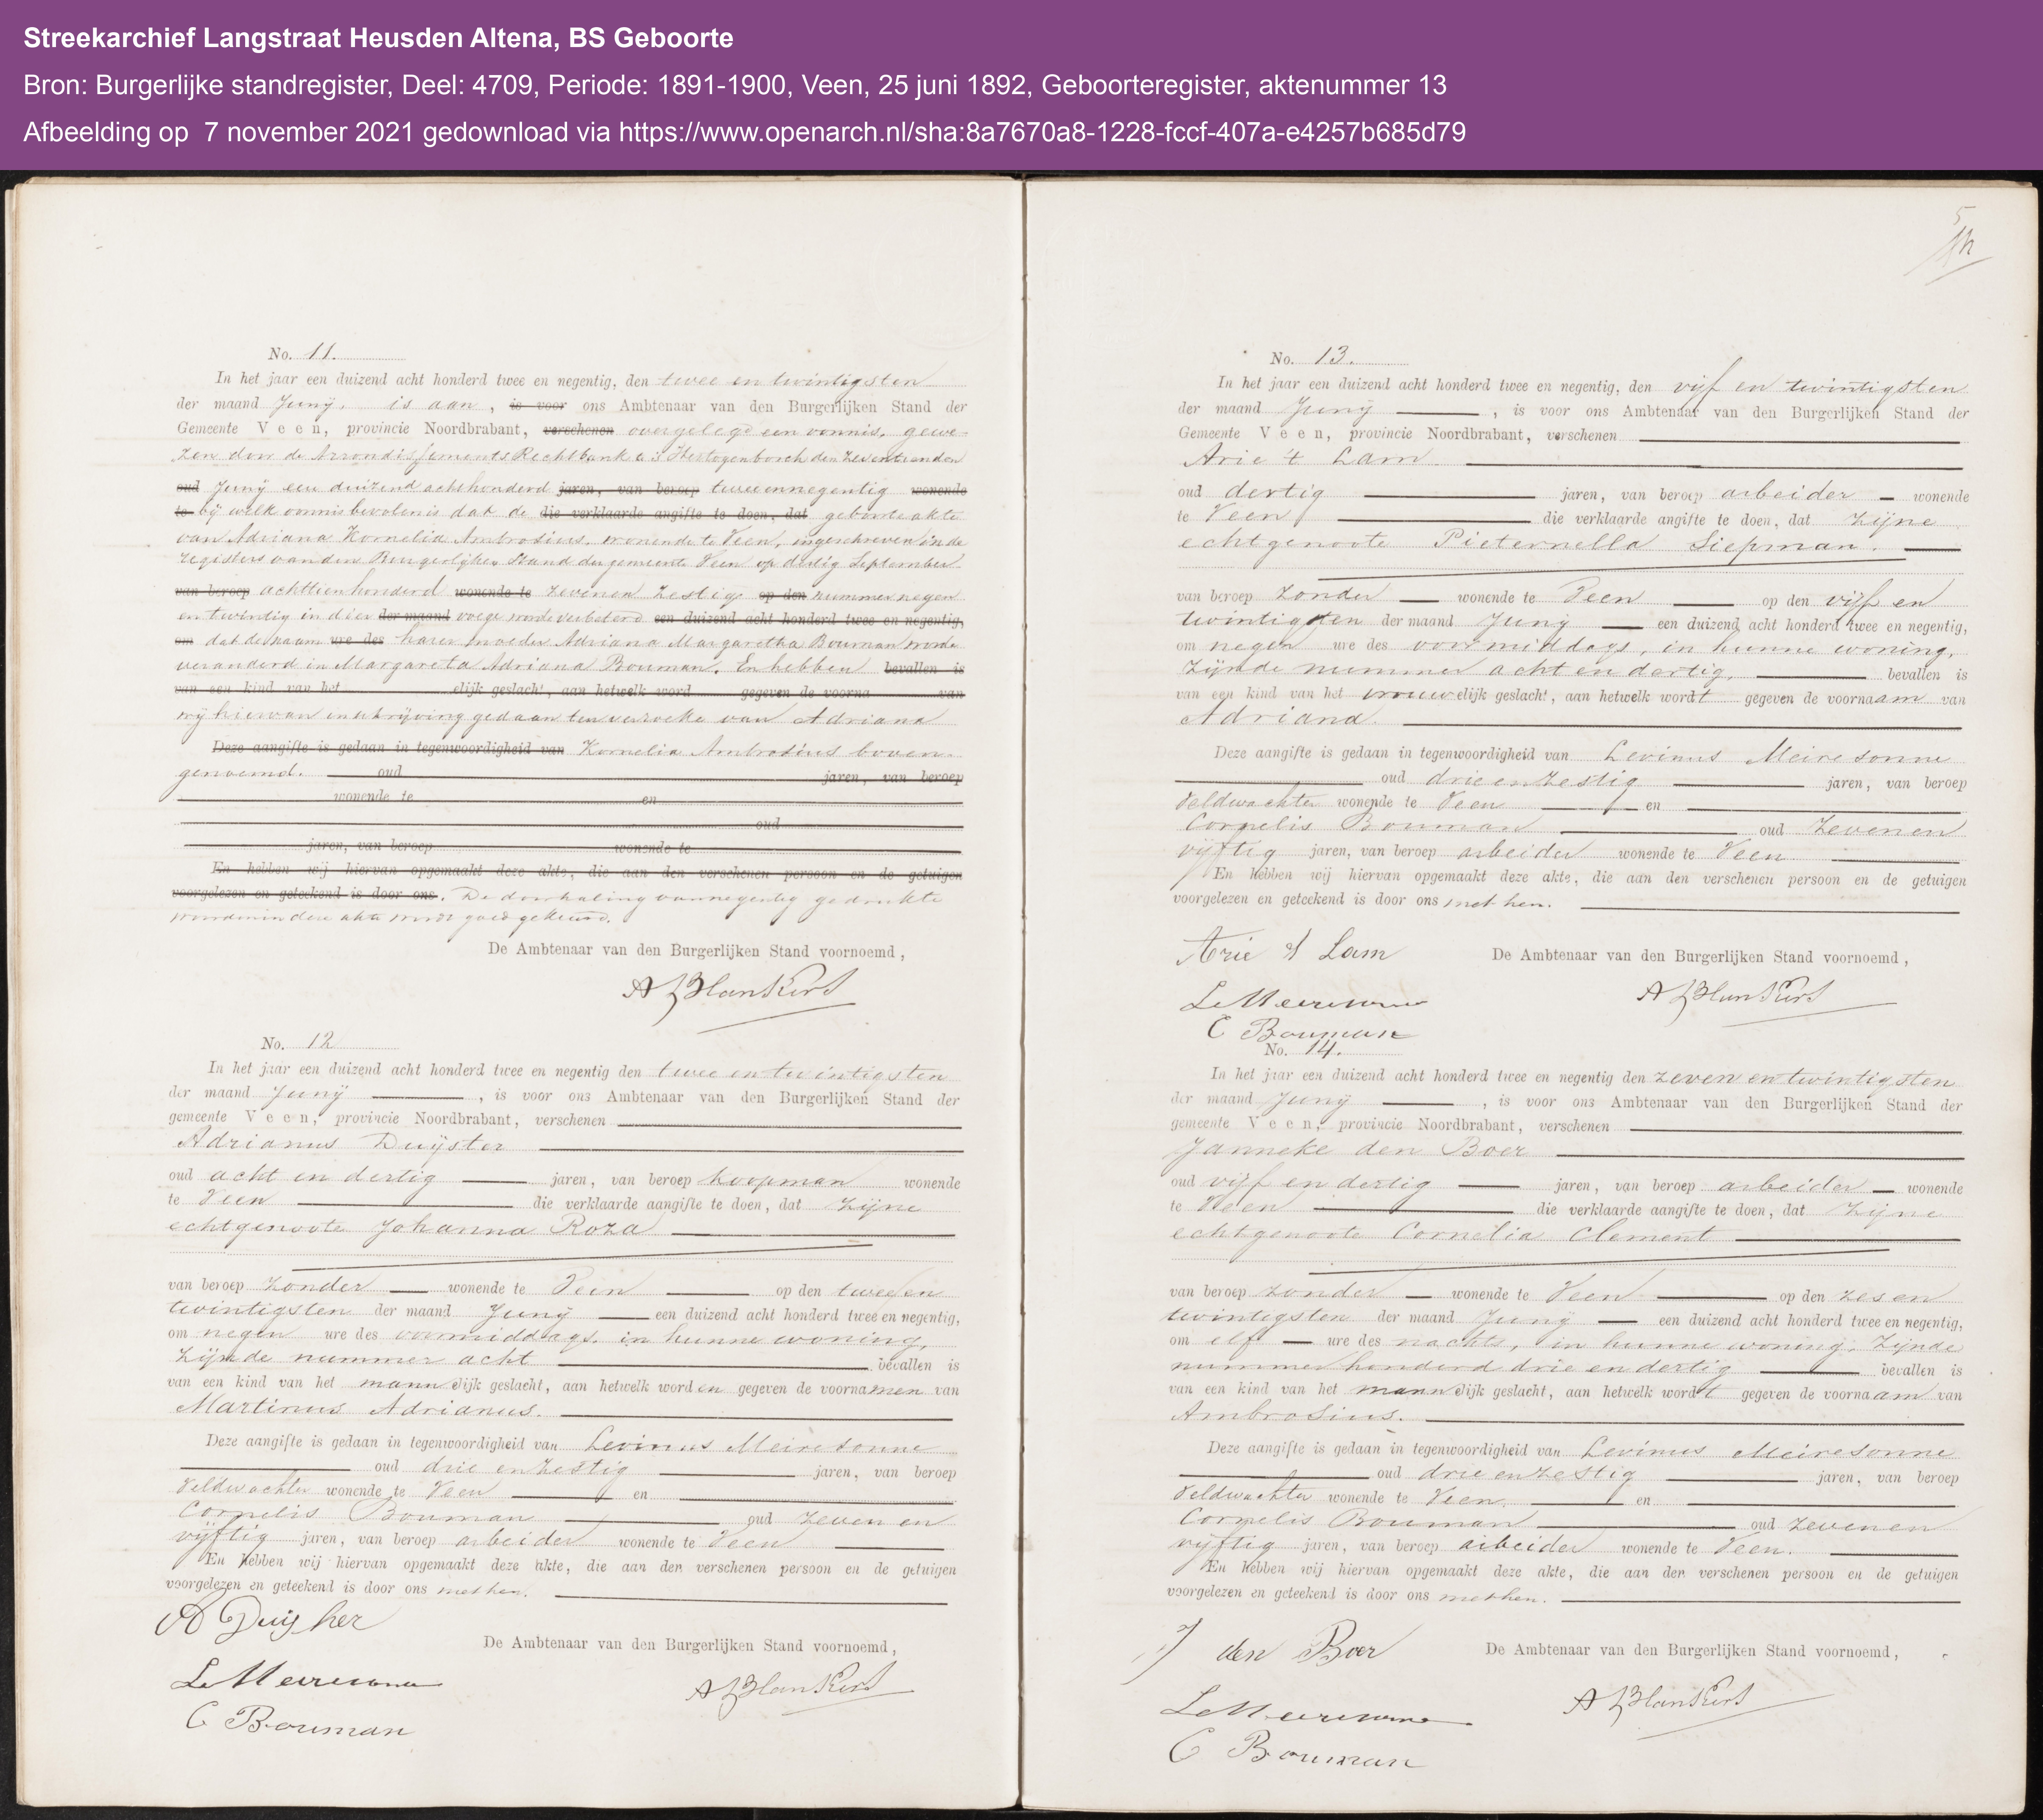 Streekarchief Langstraat Heusden Altena, BS Geboorte
Bron: Burgerlijke standregister, Deel: 4709, Periode: 1891-1900, Veen, 25 juni 1892, Geboorteregister, aktenummer 13
Afbeelding op 7 november 2021 gedownload via https://www.openarch.nl/sha:8a7670a8-1228-fccf-407a-e4257b685d79
No. 11.
In het jaar een duizend acht honderd twee en negentig, den twee en twintigsten
der maand Junÿ, is aan, is voor ons Ambtenaar van den Burgerlijken Stand der
Gemeente Veen, provincie Noordbrabant, verschenen overgelegd een vonnis, gewe-
zen door de Arrondissements Rechtbank te 's Hertogenbosch den zeventienden
oud Junÿ een duizend achthonderd jaren, van beroep tweeennegentig wonende
te bÿ welk vonnis bevolen is dat de die verklaarde angifte te doen, dat geboorteakte
van Adriana Kornelia Ambrosius, wonende te Veen, ingeschreven in de
registers van den Burgerlÿken Stand der gemeente Veen op dertig September
van beroep achttienhonderd wonende te zevenen zestig op den nummer negen
en twintig in dier der maand voege worde verbeterd een duizend acht honderd twee en negentig,
om dat de naam ure des harer moeder Adriana Margaretha Bouman worde
veranderd in Margareta Adriana Bouman. En hebben bevallen is
van een kind van het elijk geslacht, aan hetwelk word gegeven de voorna van
wÿ hiervan inschrÿving gedaan ten verzoeke van Adriana
Deze aangifte is gedaan in tegenwoordigheid van Kornelia Ambrosius boven-
genoemd. oud jaren, van beroep
wonende te en
oud
jaren, van beroep wonende te
En hebben wij hiervan opgemaakt deze akte, die aan den verschenen persoon en de getuigen
voorgelezen en geteekend is door ons. De doorhaling van negentig gedrukte
woorden in deze akte wordt goedgekeurd.
De Ambtenaar van den Burgerlijken Stand voornoemd,
No. 12
In het jaar een duizend acht honderd twee en negentig den twee en twintigsten
der maand Junÿ, is voor ons Ambtenaar van den Burgerlijken Stand der
gemeente Veen, provincie Noordbrabant, verschenen
Adrianus Duÿster
oud acht en dertig jaren, van beroep koopman wonende
te Veen die verklaarde aangifte te doen, dat zÿne
echtgenoote Johanna Roza
van beroep zonder wonende te Veen op den twee en
twintigsten der maand Junÿ een duizend acht honderd twee en negentig,
om negen ure des voormiddags, in hunne woning,
zÿnde nummer acht bevallen is
van een kind van het mannelijk geslacht, aan hetwelk worden gegeven de voornamen van
Martinus Adrianus.
Deze aangifte is gedaan in tegenwoordigheid van Levinus Meiresonne
oud drie en zestig jaren, van beroep
Veldwachter wonende te Veen en
Cornelis Bouman oud zeven en
vÿftig jaren, van beroep arbeider wonende te Veen
En hebben wij hiervan opgemaakt deze akte, die aan den verschenen persoon en de getuigen
voorgelezen en geteekend is door ons met hen.
A Duijster
De Ambtenaar van den Burgerlijken Stand voornoemd,
C Bouman
No. 13.
In het jaar een duizend acht honderd twee en negentig, den vÿf en twintigsten
der maand Junÿ, is voor ons Ambtenaar van den Burgerlijken Stand der
Gemeente Veen, provincie Noordbrabant, verschenen
Arie 't Lam
oud dertig jaren, van beroep arbeider wonende
te Veen die verklaarde angifte te doen, dat zÿne
echtgenoote Pieternella Siepman.
van beroep zonder wonende te Veen op den vÿf en
twintigsten der maand Junÿ een duizend acht honderd twee en negentig,
om negen ure des voormiddags, in hunne woning,
zÿnde nummer acht en dertig, bevallen is
van een kind van het vrouwelijk geslacht, aan hetwelk wordt gegeven de voornaam van
Adriana.
Deze aangifte is gedaan in tegenwoordigheid van Levinus Meiresonne
oud drie en zestig jaren, van beroep
Veldwachter wonende te Veen en
Cornelis Bouman oud zeven en
vÿftig jaren, van beroep arbeider wonende te Veen
En hebben wij hiervan opgemaakt deze akte, die aan den verschenen persoon en de getuigen
voorgelezen en geteekend is door ons met hen.
Arie 't Lam
De Ambtenaar van den Burgerlijken Stand voornoemd,
C Bouman
No. 14.
In het jaar een duizend acht honderd twee en negentig den zeven en twintigsten
der maand Junÿ, is voor ons Ambtenaar van den Burgerlijken Stand der
gemeente Veen, provincie Noordbrabant, verschenen
Janneke den Boer
oud vÿf en dertig jaren, van beroep arbeider wonende
te Veen die verklaarde aangifte te doen, dat zÿne
echtgenoote Cornelia Clement
van beroep zonder wonende te Veen op den zes en
twintigsten der maand Junÿ een duizend acht honderd twee en negentig,
om elf ure des nachts, in hunne woning, zÿnde
nummer honderd drie en dertig bevallen is
van een kind van het mannelijk geslacht, aan hetwelk wordt gegeven de voornaam van
Ambrosius.
Deze aangifte is gedaan in tegenwoordigheid van Levinus Meiresonne
oud drie en zestig jaren, van beroep
Veldwachter wonende te Veen, en
Cornelis Bouman oud zeven en
vÿftig jaren, van beroep arbeider wonende te Veen.
En hebben wij hiervan opgemaakt deze akte, die aan den verschenen persoon en de getuigen
voorgelezen en geteekend is door ons met hen.
J den Boer
De Ambtenaar van den Burgerlijken Stand voornoemd,
C Bouman